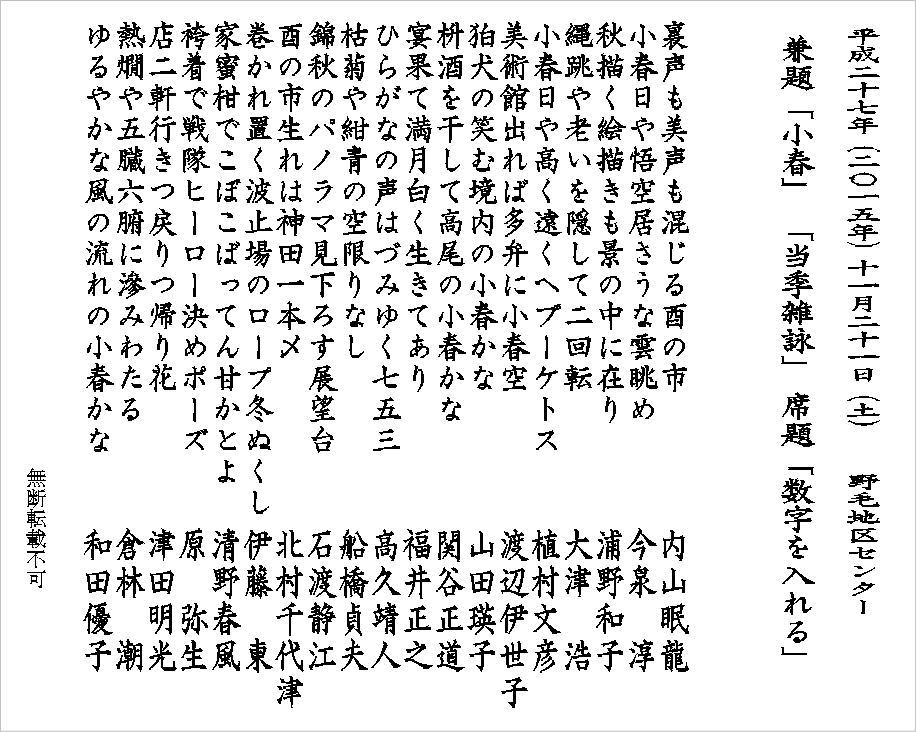 平成二十七年(二〇一五年)十一月二十一日(土) 野毛地区センター
兼題「小春」 「当季雑詠」 席題「数字を入れる」
裏声も美声も混じる酉の市 内山眠龍
小春日や悟空居さうな雲眺め 今泉淳
秋描く絵描きも景の中に在り 浦野和子
縄跳や老いを隠して二回転 大津浩
小春日や高く遠くへブーケトス 植村文彦
美術館出れば多弁に小春空 渡辺伊世子
狛犬の笑む境内の小春かな 山田瑛子
枡酒を干して高尾の小春かな 関谷正道
宴果て満月白く生きてあり 福井正之
ひらがなの声はづみゆく七五三 高久靖人
枯菊や紺青の空限りなし 船橋貞夫
錦秋のパノラマ見下ろす展望台 石渡静江
酉の市生れは神田一本〆 北村千代津
巻かれ置く波止場のロープ冬ぬくし 伊藤東
家蜜柑でこぼこばってん甘かとよ 清野春風
袴着で戦隊ヒーロー決めポーズ 原弥生
店二軒行きつ戻りつ帰り花 津田明光
熱燗や五臓六腑に滲みわたる 倉林潮
ゆるやかな風の流れの小春かな 和田優子
無断転載不可